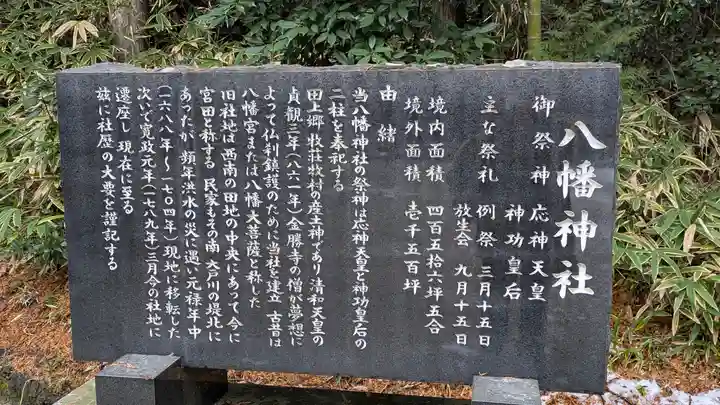 八幡神社
御祭神 応神天皇
神功皇后
主な祭礼 例祭 三月十五日
放生会 九月十五日
境内面積 四百五拾六坪五合
境外面積 壱千五百坪
由緒
当八幡神社の祭神は応神天皇と神功皇后の
二柱を奉祀する
田上郷牧荘牧村の産土神であり清和天皇の
貞観三年(八六一年)金勝寺の僧が夢想に
よって仏利鎮護のために当社を建立 古昔は
八幡宮または八幡大菩薩と称した
旧社地は西南の田地の中央にあって今に
宮田と称する 民家もその南 大戸川の堤北に
あったが 頻年洪水の災に遭い元禄年中
(一六八八年〜一七〇四年)現地に移転した
次いで寛政元年(一七八九年)三月今の社地に
遷座し 現在に至る
茲に社歴の大要を謹記する